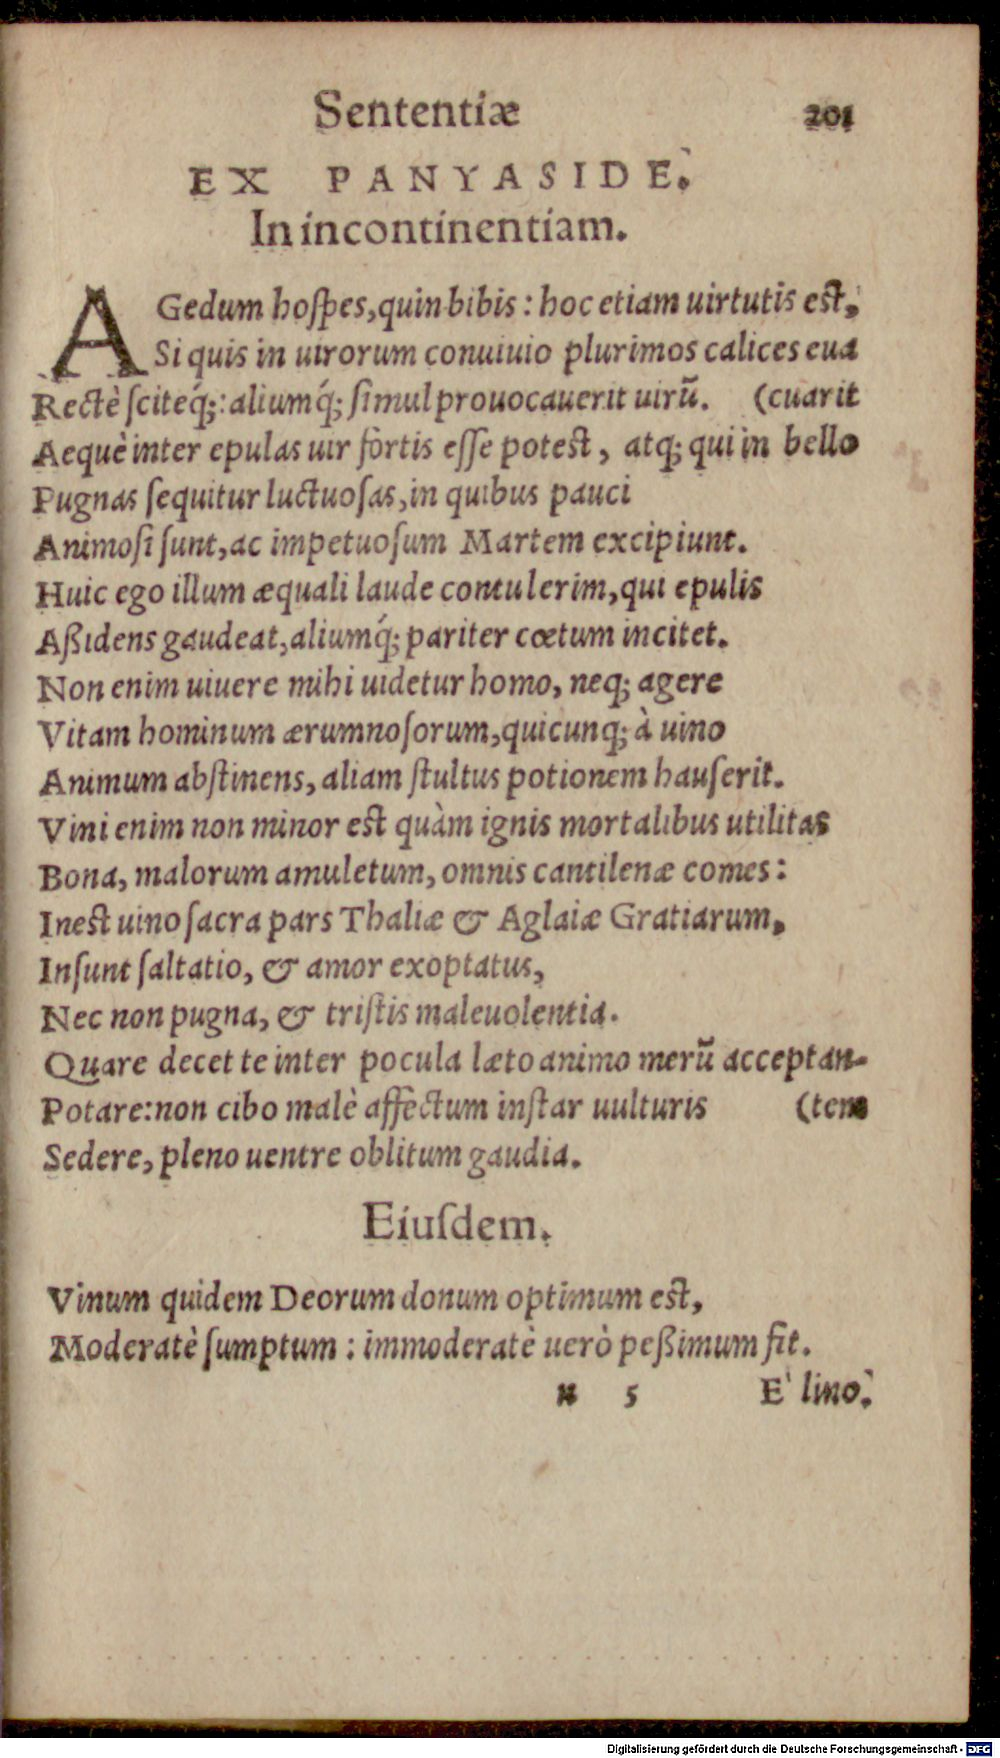 Sententiæ 201
EX PANYASIDE.
In incontinentiam.
AGedum hoſpes, quin bibis: hoc etiam uirtutis est,
Si quis in uirorum conuiuio plurimos calices eua
Rectè ſciteq́;: aliumq́; ſimul prouocauerit uirũ. (cuarit
Aequè inter epulas uir fortis eſſe potest, atq; qui in bello
Pugnas ſequitur luctuoſas, in quibus pauci
Animoſi ſunt, ac impetuoſum Martem excipiunt.
Huic ego illum æquali laude contulerim, qui epulis
Aßidens gaudeat, aliumq́; pariter cœtum incitet.
Non enim uiuere mihi uidetur homo, neq; agere
Vitam hominum ærumnoſorum, quicunq; à uino
Animum abſtinens, aliam ſtultus potionem hauſerit.
Vini enim non minor est quàm ignis mortalibus utilitas
Bona, malorum amuletum, omnis cantilenæ comes:
Inest uino ſacra pars Thaliæ & Aglaiæ Gratiarum,
Inſunt ſaltatio, & amor exoptatus,
Nec non pugna, & triſtis maleuolentia.
Quare decet te inter pocula læto animo merũ acceptan-
Potare: non cibo malè affectum inſtar uulturis (tem
Sedere, pleno uentre oblitum gaudia.
Eiuſdem.
Vinum quidem Deorum donum optimum est,
Moderatè ſumptum: immoderatè uerò peßimum fit.
n 5 E' lino.
Digitalisierung gefördert durch die Deutsche Forschungsgemeinschaft - DFG